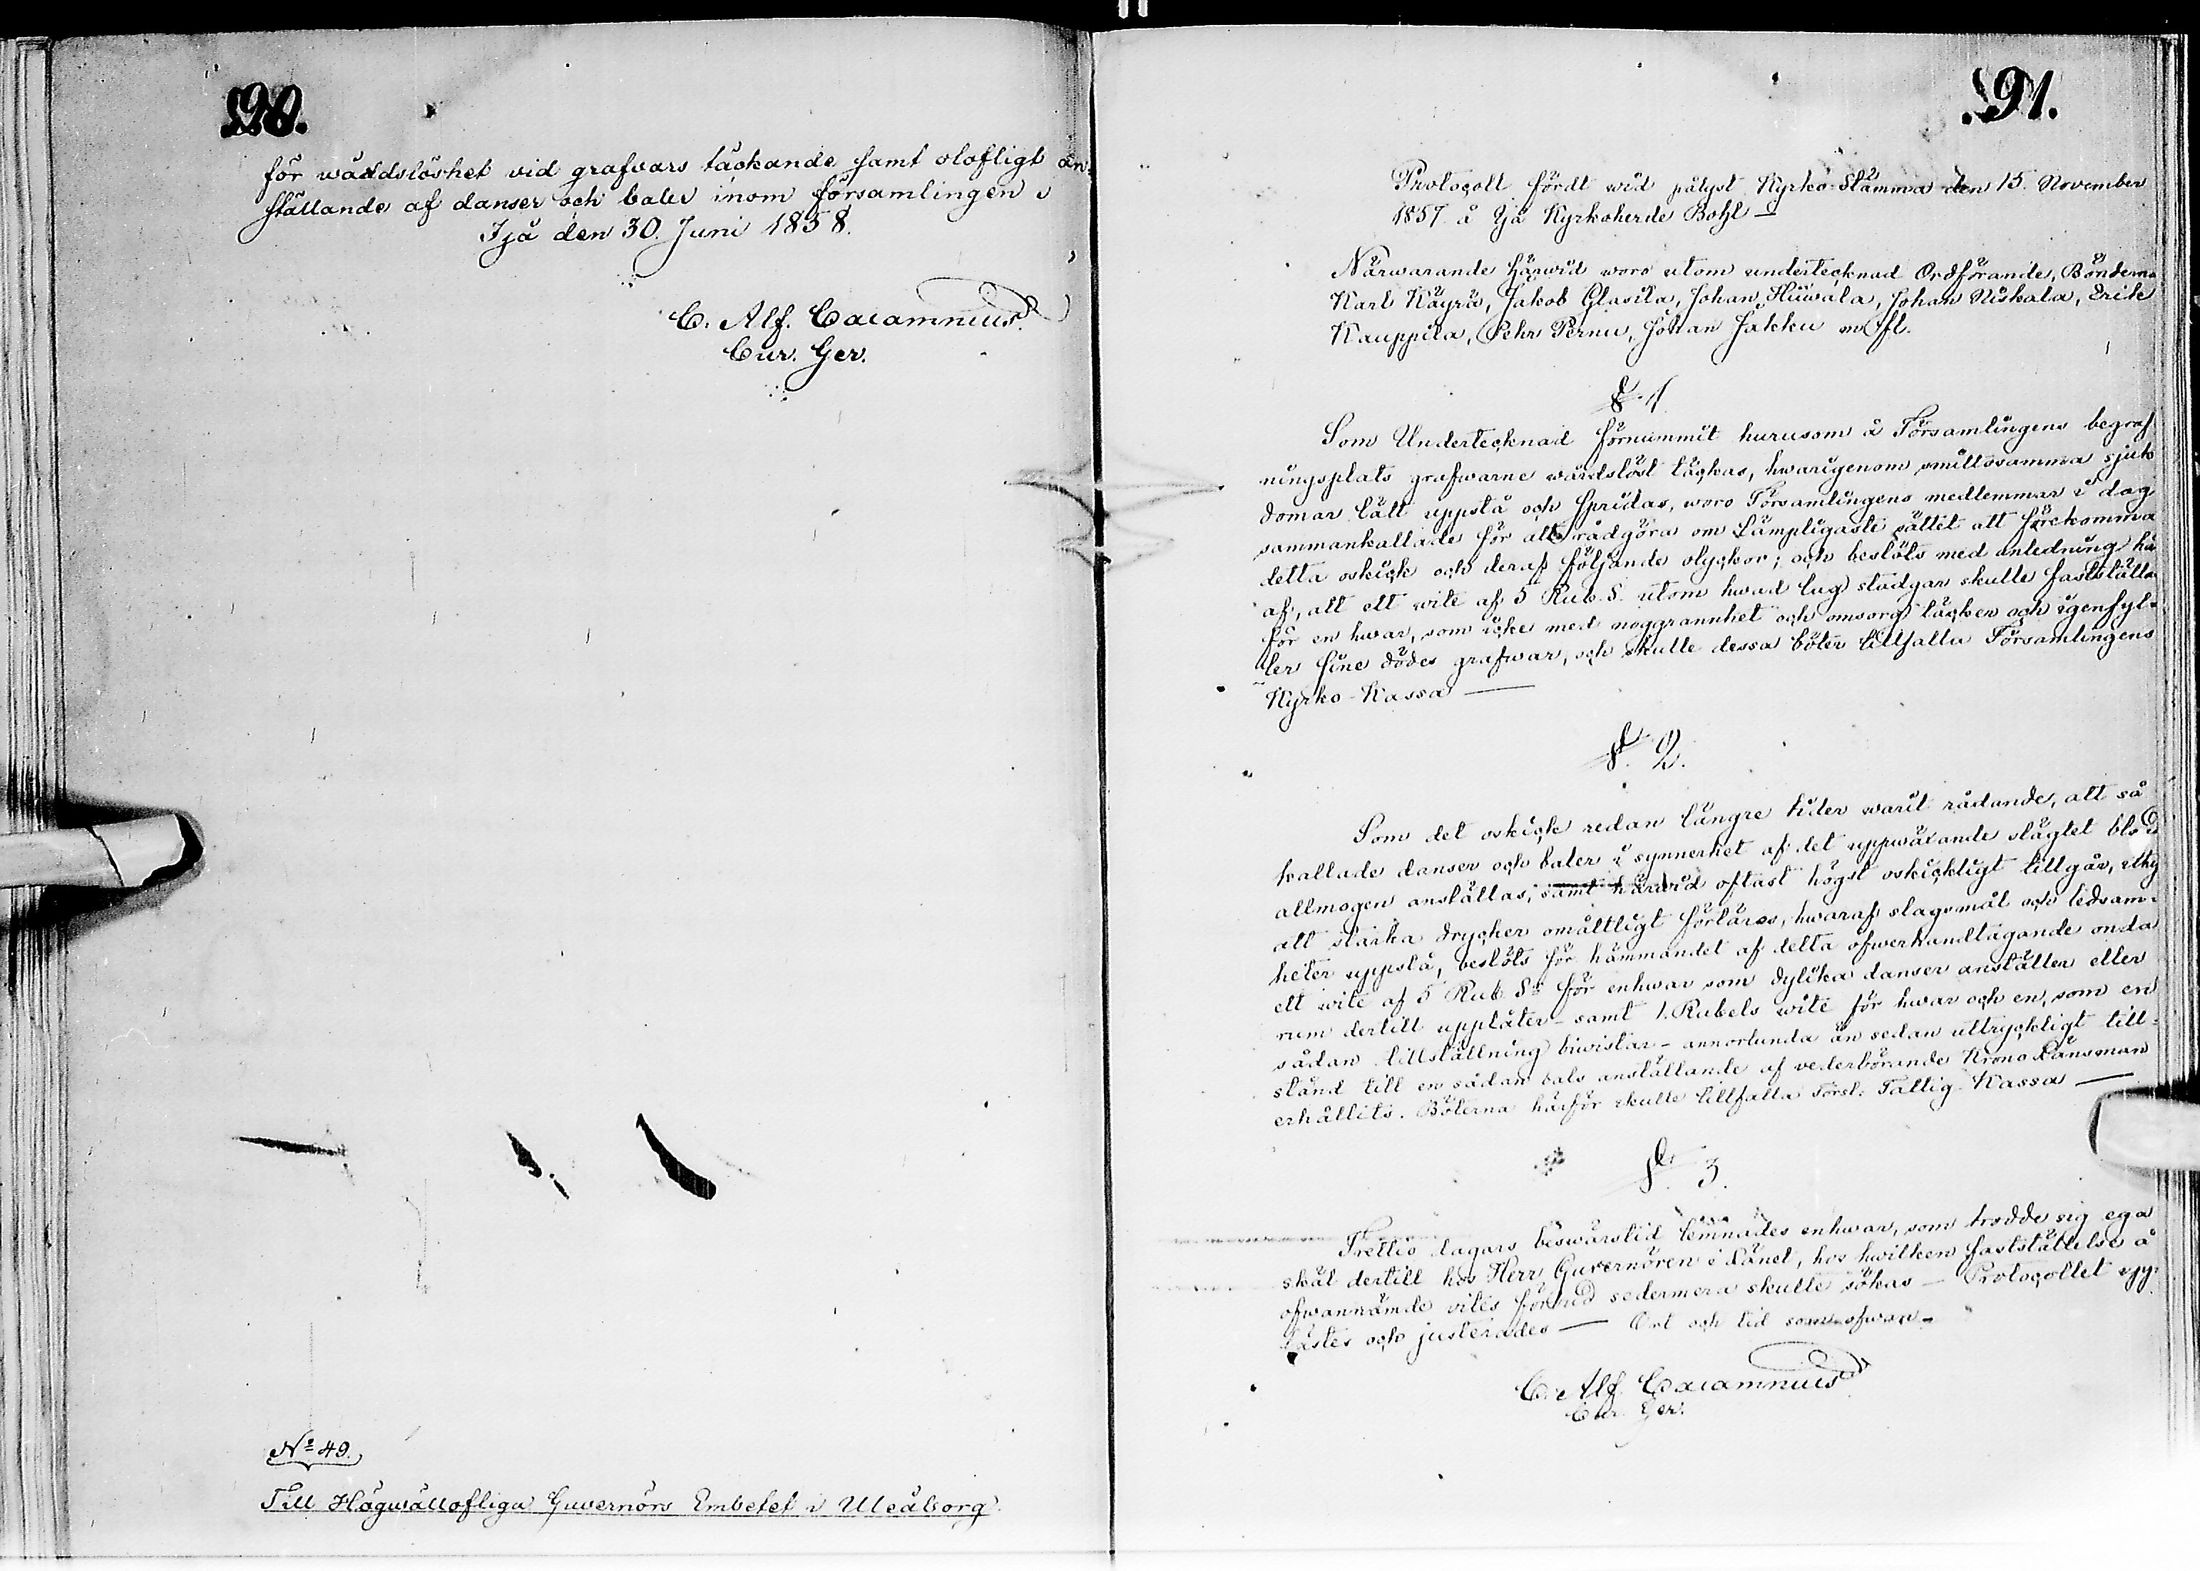 90.
för wårdslöshet vid grafvars täckande samt olofligt an-
ställande af danser och baler inom församlingen.
Ijå den 30. Juni 1858.
C. Alf. Cacamnius.
Cur. Ger.
No 49.
Till Högwällofliga Guvernörs Embetet i Uleåborg.
91.
Protocoll fördt wid pålyst Kyrko-Stämma den 15. November
1857 å Ijå Kyrkoherde Bohl —
Närwarande härwid woro utom undertecknad Ordförande, Bönderna
Karl Käyrä, Jakob Glasila, Johan Hiiwala, Johan Niskala, Erik
Kauppila, Pehr Pernu, Johan Jakku m. fl.
§ 1
Som Undertecknad förnummit hurusom å Församlingens begraf
ningsplats grafwarne wårdslöst täckas, hwarigenom smittosamma sjuk
domar lätt uppstå och spridas, woro Församlingens medlemmar i dag
sammankallade för att rådgöra om Lämpligaste sättet att förekomma
detta oskick och deraf följande olyckor; och beslöts med anledning hä
af, att ett wite af 5 Rub. S. utom hwad lag stadgar skulle fastställa
för en hwar, som icke med noggrannhet och omsorg täcker och igenfyl-
ler sine dödes grafwar, och skulle dessa böter tillfalla Församlingens
Kyrko-Kassa —
§. 2.
Som det oskick redan längre tider warit rådande, att så
kallade danser och baler i synnerhet af det uppwäxande slägtet bland
allmogen anställas, samt härwid oftast högst oskickligt tillgår,
att starka drycker omåttligt förtäras, hwaraf slagsmål och ledsam-
heter uppstå, beslöts för hämmandet af detta ofwerhandtagande onda
ett wite af 5 Rub. Sr för enhwar som dylika danser anställer eller
rum dertill upplåter – samt 1. Rubels wite för hwar och en, som en
sådan tillställning biwistar – annorlunda än sedan uttryckligt till-
stånd till en sådan bals anställande af vederbörande Krono Länsman
erhållits. Böterna härför skulle tillfalla Försl. Fattig-Kassa —
§. 3.
Trettio dagars beswärstid lemnades enhwar, som trodde sig ega
skäl dertill hos Herr Guvernören i Länet, hos hwilken fastställelse å
ofwannämde vites förbud sedermera skulle sökas — Protocollet upp-
lästes och justerades — Ort och tid som ofwan –
C. Alf. Cacamnius
Cur. Ger.